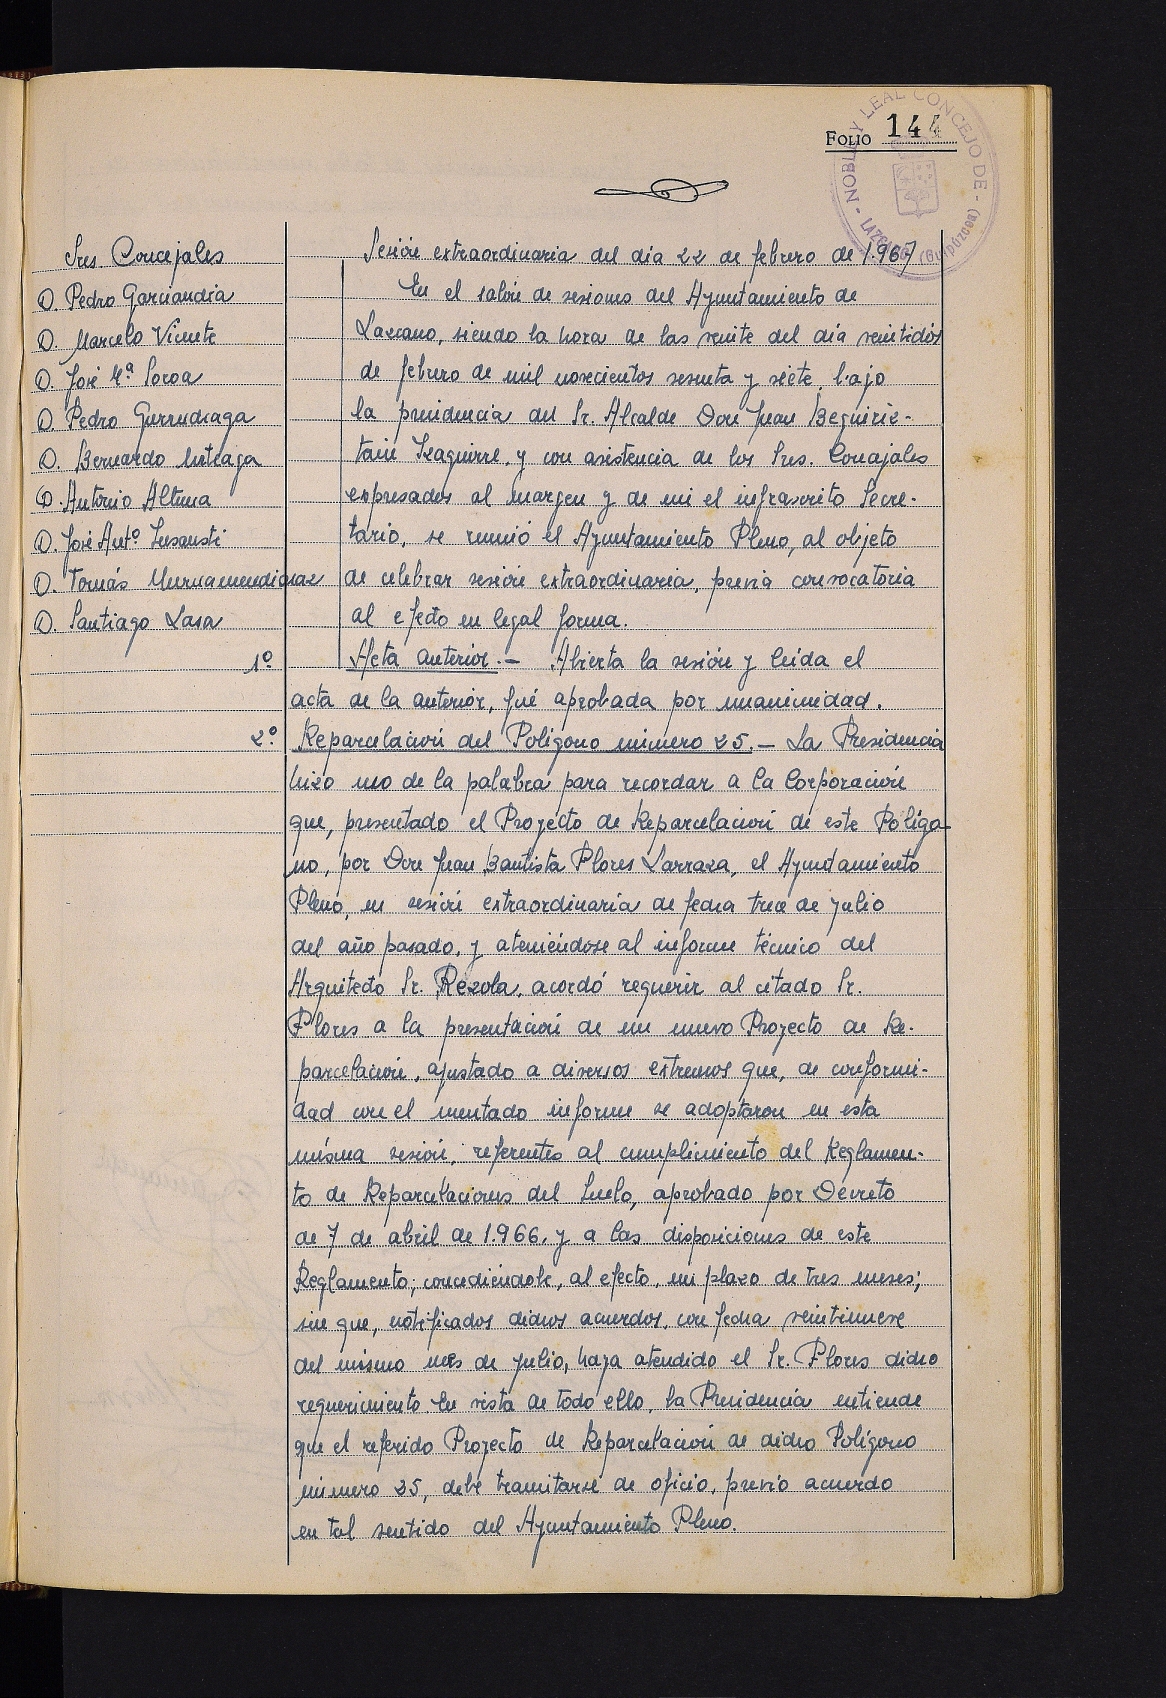 FOLIO 144
NOBLE Y LEAL CONCEJO DE
LAZCANO (Guipúzcoa)
Sres. Concejales
D. Pedro Garmandia
D. Marcelo Vicente
D. José Mª Soroa
D. Pedro Gurrudiaga
D. Bernardo Urteaga
D. Antonio Altuna
D. José Antº Insausti
D. Tomás Muruamendiaraz
D. Santiago Lasa
Sesión extraordinaria del día 22 de febrero de 1.967
En el salón de sesiones del Ayuntamiento de
Lazcano, siendo la hora de las veinte del día veintidós
de febrero de mil novecientos sesenta y siete, bajo
la presidencia del Sr. Alcalde Don Juan Beguiriz-
tain Izaguirre, y con asistencia de los Sres. Concejales
expresados al margen y de mi el infrascrito Secre-
tario, se reunió el Ayuntamiento Pleno, al objeto
de celebrar sesión extraordinaria, previa convocatoria
al efecto en legal forma.
1º Acta anterior.- Abierta la sesión y leída el
acta de la anterior, fué aprobada por unanimidad.
2º. Reparcelación del Polígono número 25.- La Presidencia
hizo uso de la palabra para recordar a la Corporación
que, presentado el Proyecto de Reparcelación de este Polígo-
no, por Don Juan Bautista Flores Larraza, el Ayuntamiento
Pleno, en sesión extraordinaria de fecha trece de julio
del año pasado, y ateniéndose al informe técnico del
Arquitecto Sr. Rezola, acordó requerir al citado Sr.
Flores a la presentación de un nuevo Proyecto de Re-
parcelación, ajustado a diversos extremos que, de conformi-
dad con el mentado informe se adoptaron en esta
misma sesión, referentes al cumplimiento del Reglamen-
to de Reparcelaciones del Suelo, aprobado por Decreto
de 7 de abril de 1.966, y a las disposiciones de este
Reglamento; concediéndole, al efecto, un plazo de tres meses;
sin que, notificados dichos acuerdos, con fecha veintinueve
del mismo mes de julio, haya atendido el Sr. Flores dicho
requerimiento. En vista de todo ello, la Presidencia entiende
que el referido Proyecto de Reparcelación de dicho Polígono
número 25, debe tramitarse de oficio, previo acuerdo
en tal sentido del Ayuntamiento Pleno.